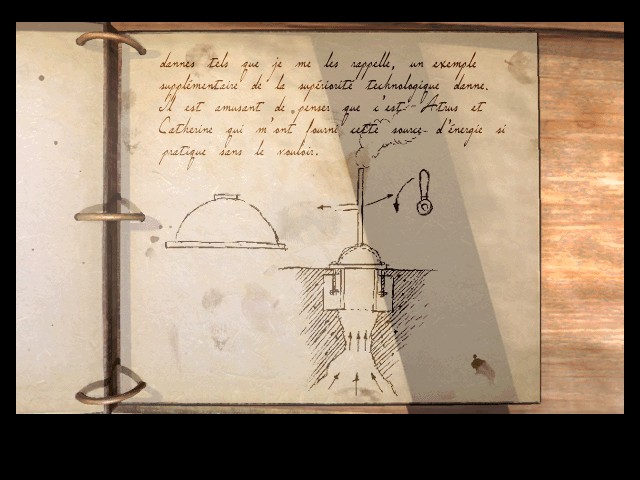 dannes tels que je me les rappelle, un exemple
supplémentaire de la supériorité technologique danne.
Il est amusant de penser que c'est Atrus et
Catherine qui m'ont fourni cette source d'énergie si
pratique sans le vouloir.